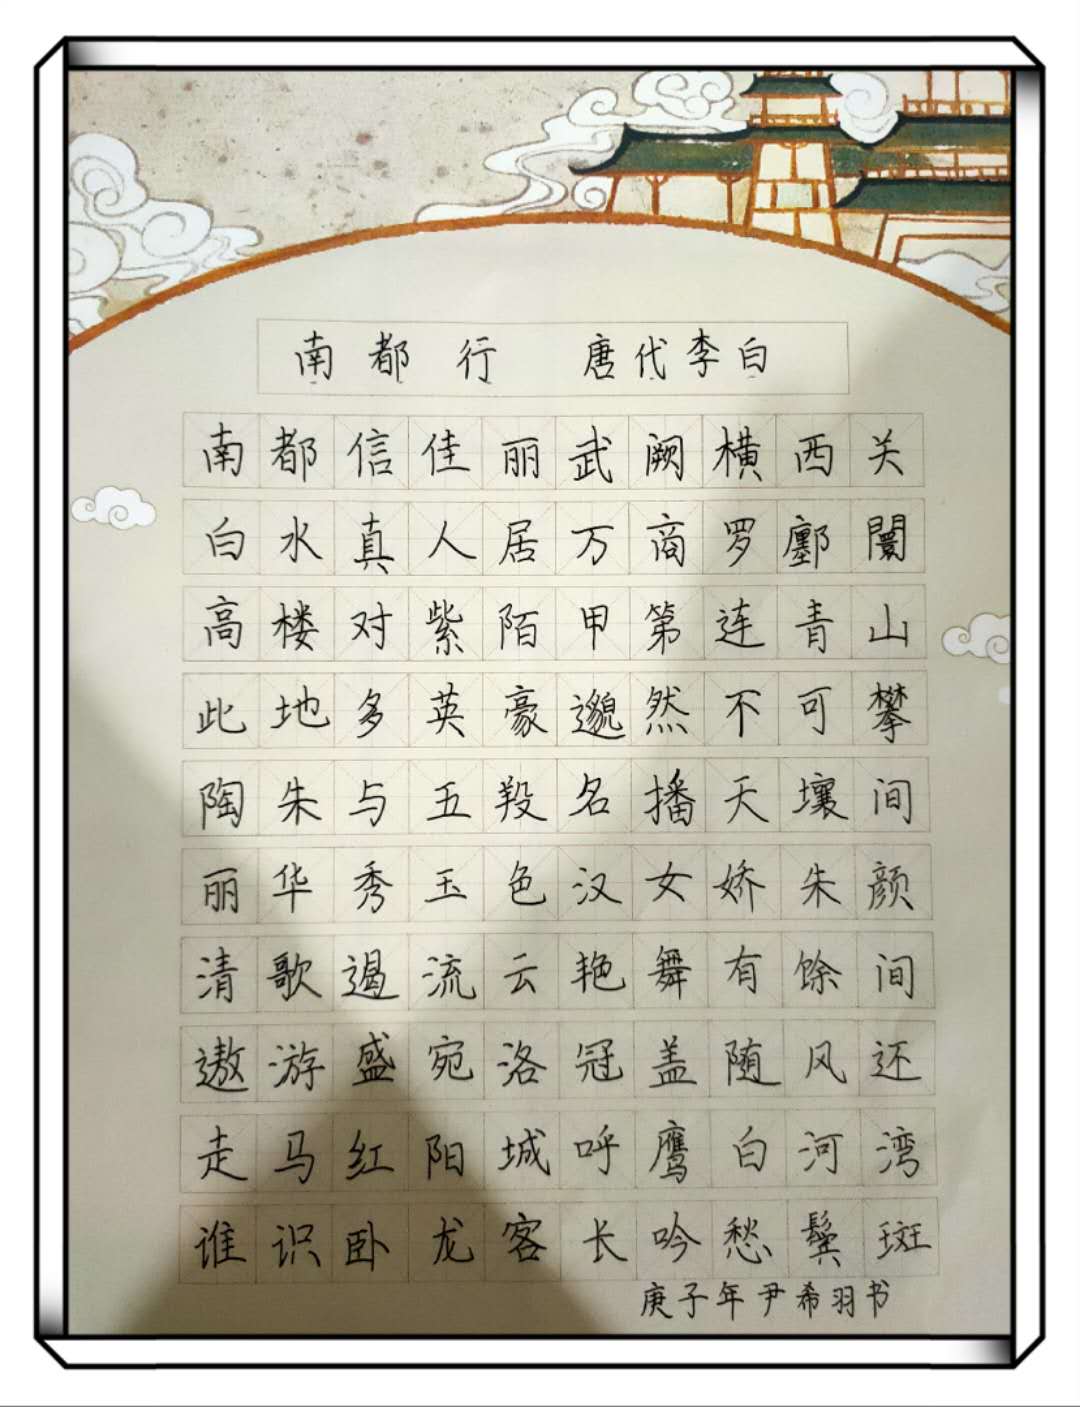 南都行 唐代李白
南都信佳丽武阙横西关
白水真人居万商罗鄽闤
高楼对紫陌甲第连青山
此地多英豪邈然不可攀
陶朱与五羖名播天壤间
丽华秀玉色汉女娇朱颜
清歌遏流云艳舞有馀间
遨游盛宛洛冠盖随风还
走马红阳城呼鹰白河湾
谁识卧龙客长吟愁鬓斑
庚子年尹希羽书